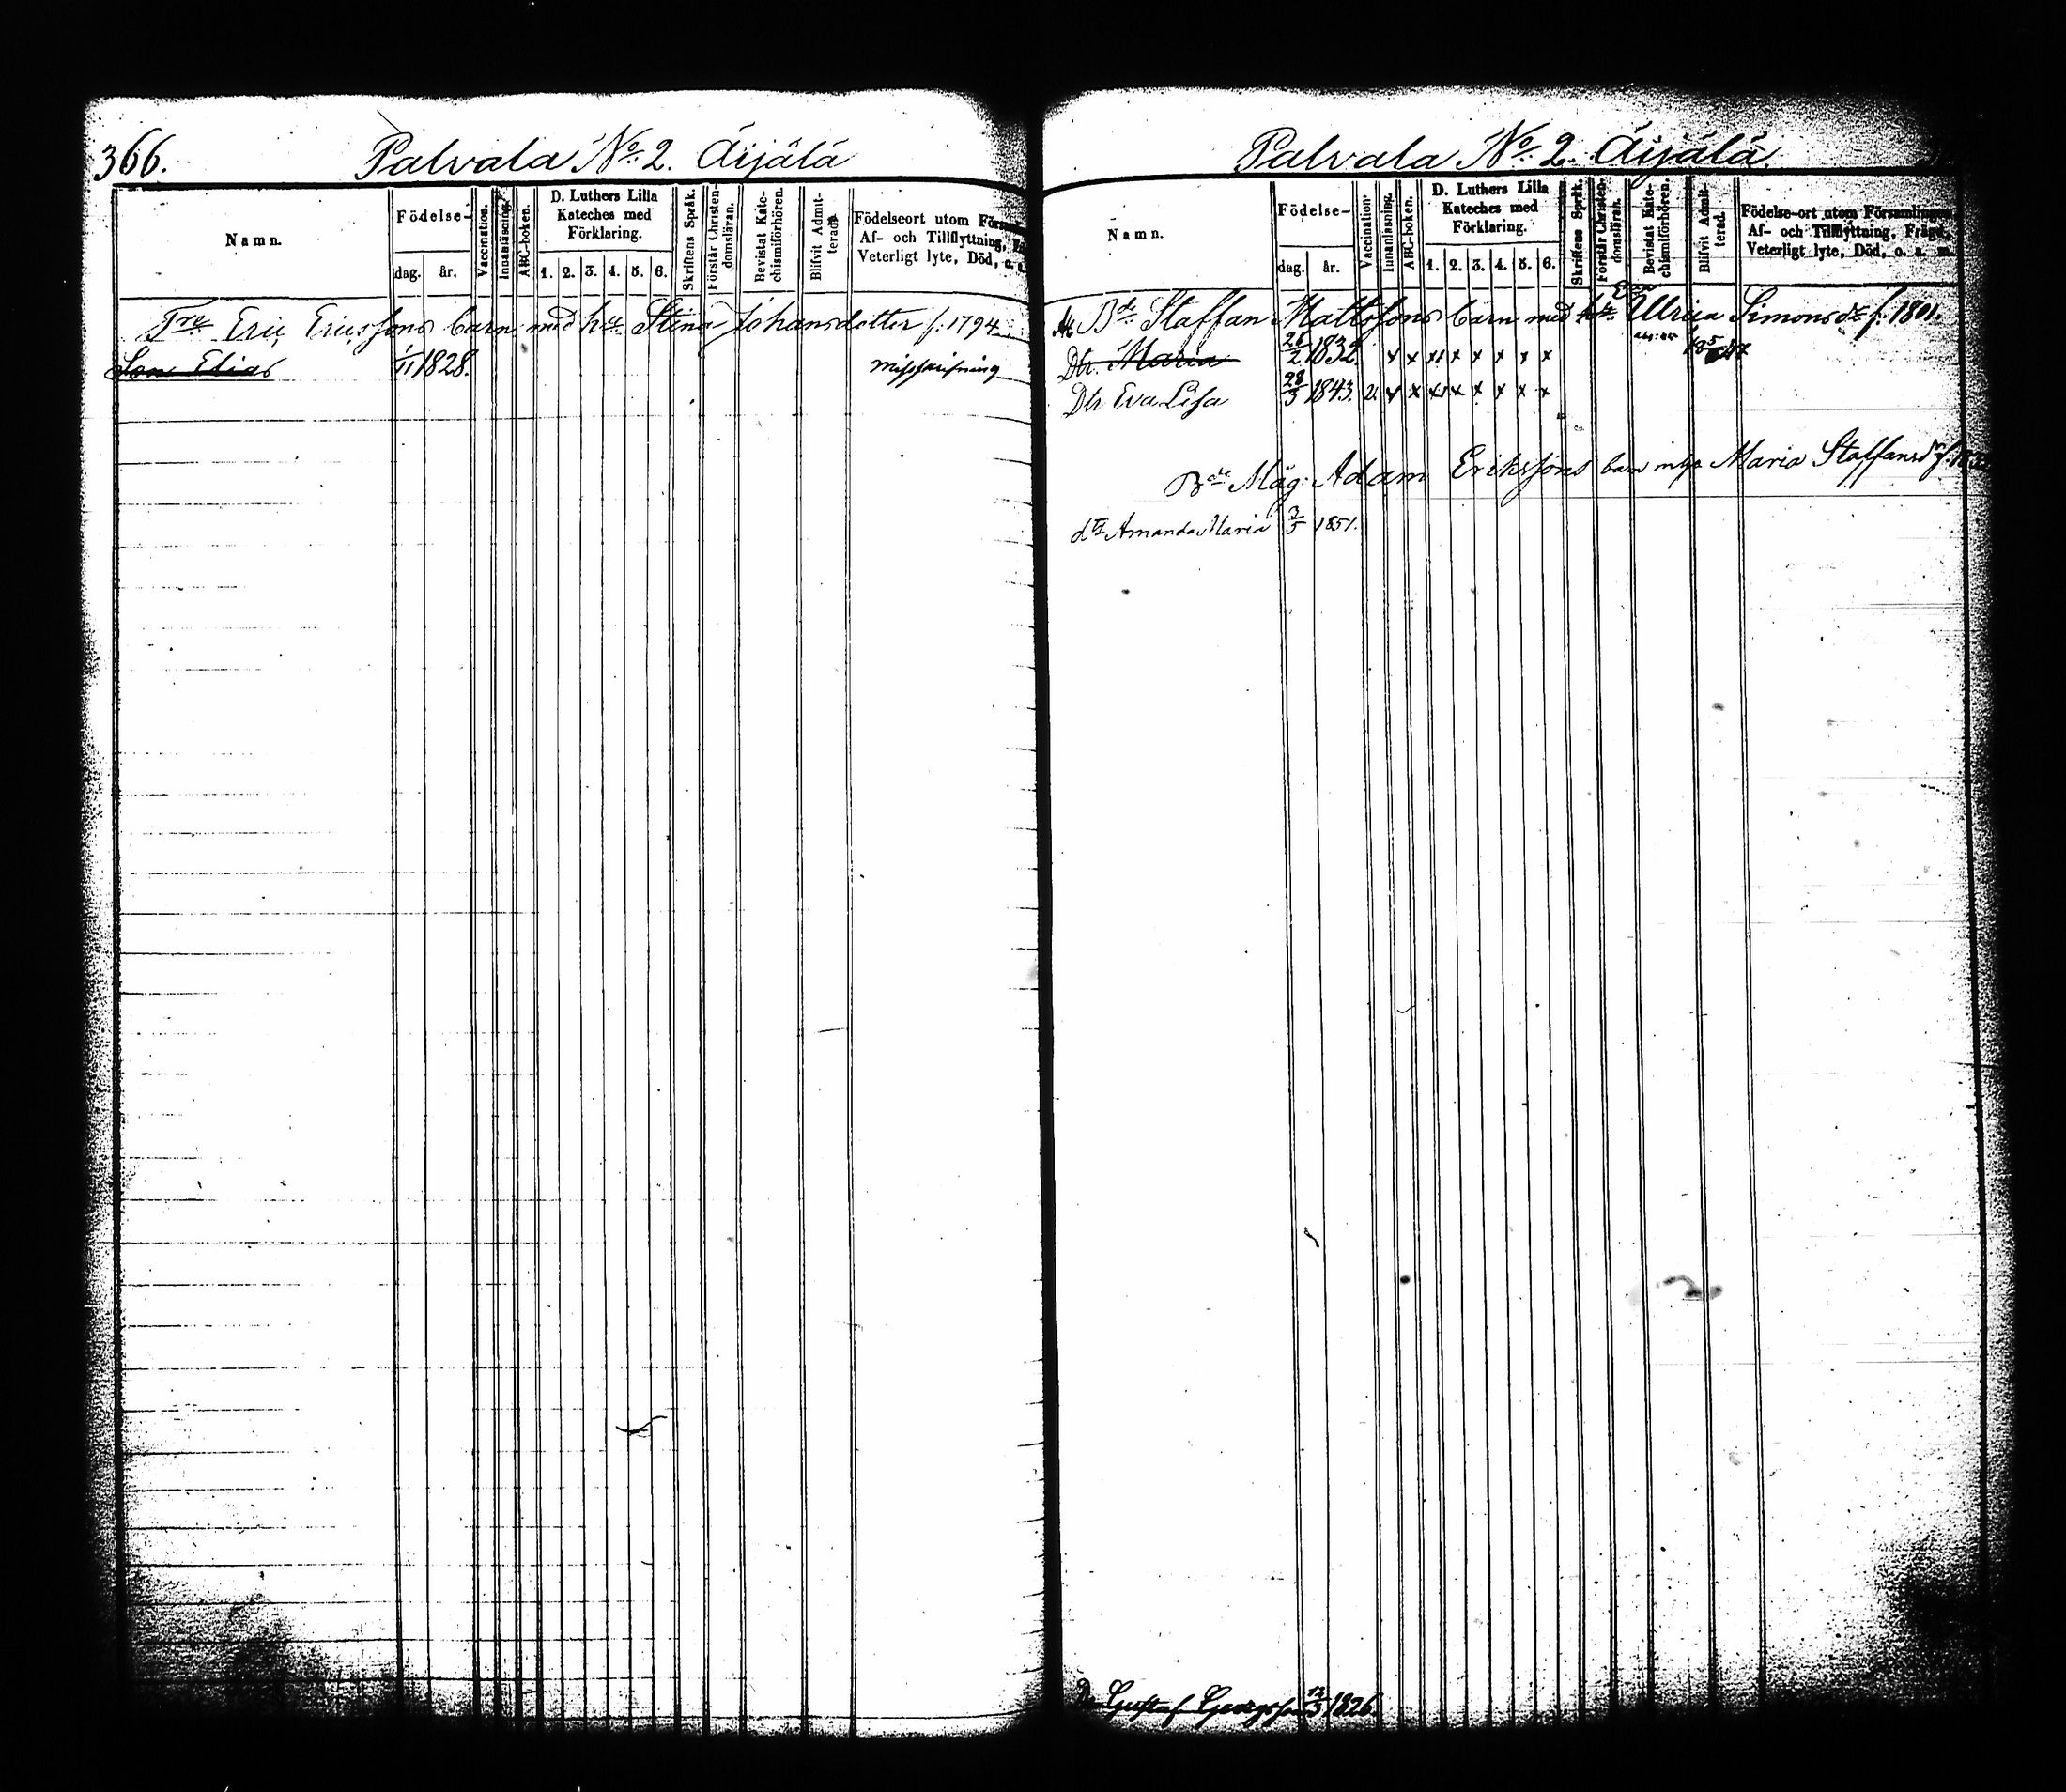 366.
Palvala No. 2. Äijälä
Namn.
Födelse-
dag. år.
Vaccination.
Innanläsning.
ABC-boken.
D. Luthers Lilla
Kateches med
Förklaring.
1. 2. 3. 4. 5. 6.
Skriftens Språk.
Förstår Christen-
domsläran.
Bevistat Kate-
chismiförhören.
Blifvit Admit-
terad.
Födelseort utom
Af- och Tillflyttning,
Veterligt lyte, Död, o. a.
Eric Ericssons barn med hu Stina Johansdotter f. 1794
Son Elias 1/11 1828. misskrifning
Palvala No. 2. Äijälä
Namn.
Födelse-
dag. år.
Vaccination.
Innanläsning.
ABC-boken.
D. Luthers Lilla
Kateches med
Förklaring.
1. 2. 3. 4. 5. 6.
Skriftens Språk.
Förstår Christen-
domsläran.
Bevistat Kate-
chismiförhören.
Blifvit Admit-
terad.
Födelse-ort utom Församlingen,
Af- och Tillflyttning, Frägd,
Veterligt lyte, Död, o. a. m.
Bde Staffan Mattssons barn med Ullrica Simonsdr f. 1801.
Dtr. Maria 26/2 1832
Dtr Eva Lisa 28/3 1843. v.
Bde Måg: Adam Erikssons barn Maria Staffansdr
dtr Amanda Maria 1851.
Gustaf 1826.